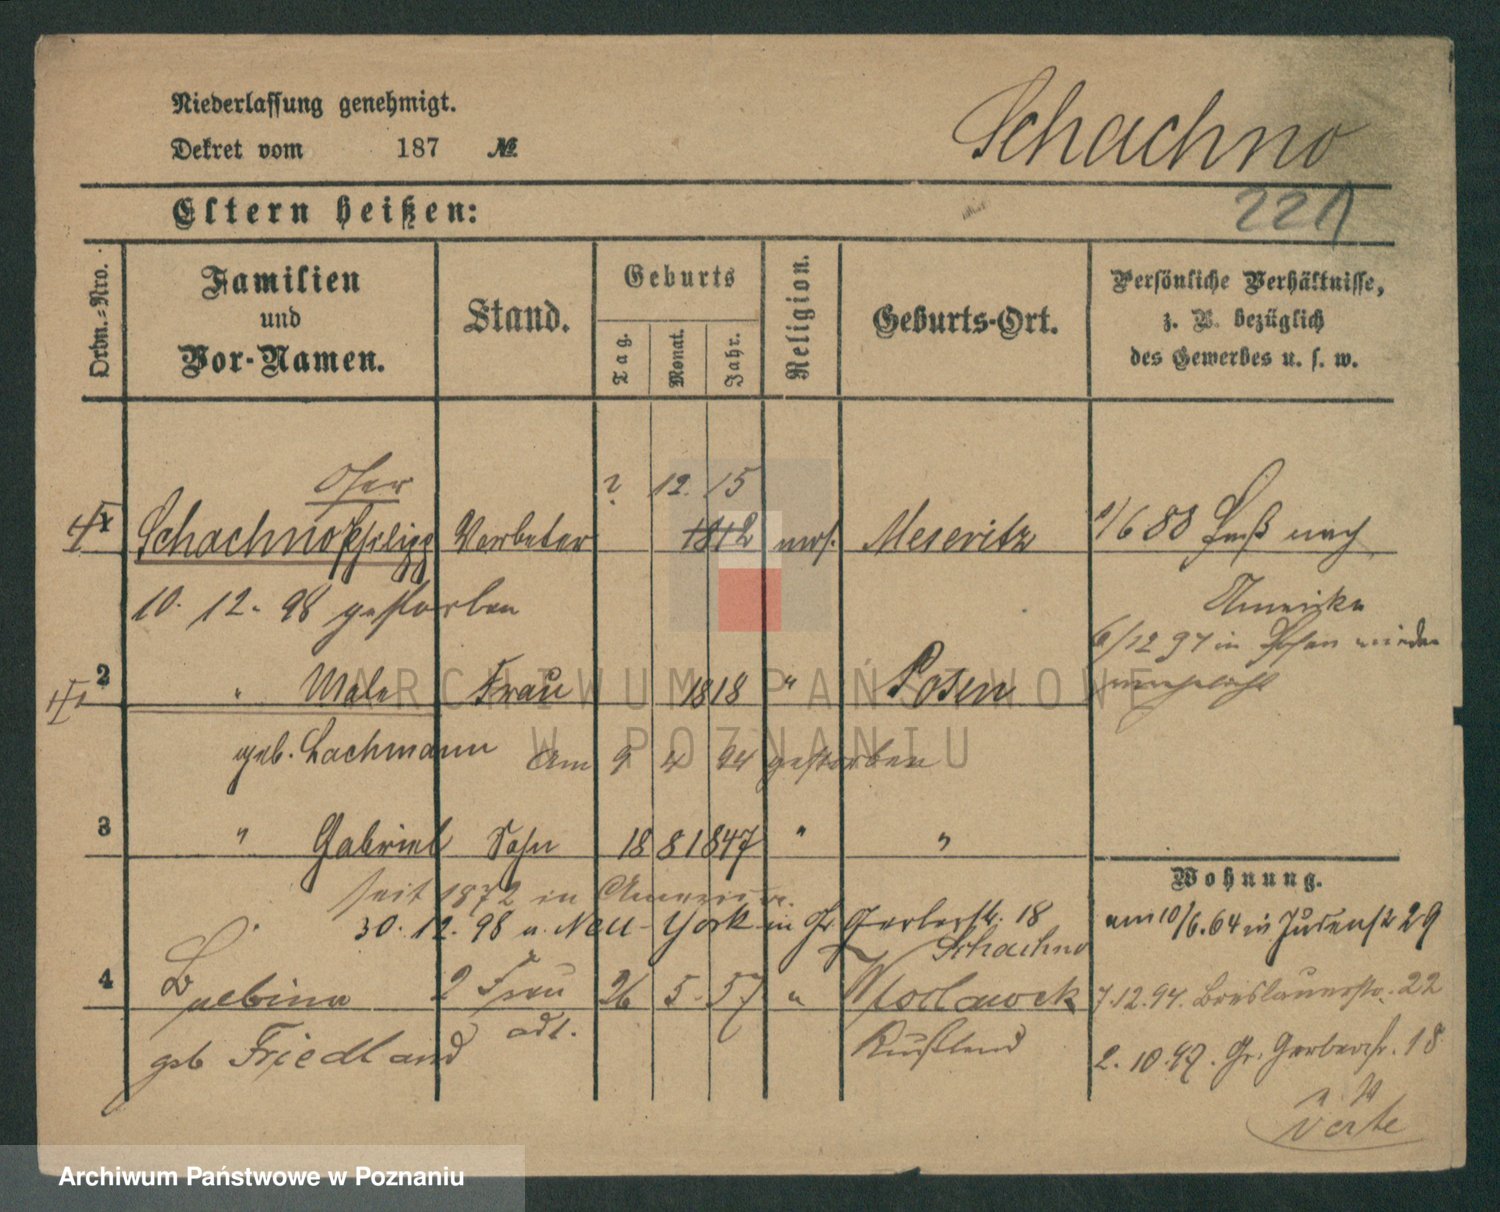 Niederlassung genehmigt.
Schachno
Dekret vom 187 №
Eltern heißen:
221
Ordn.-Nro.
Familien und Vor-Namen.
Stand.
Geburts
Tag.
Monat.
Jahr.
Religion.
Geburts-Ort.
Persönliche Verhältnisse,
z. B. bezüglich
des Gewerbes u. s. w.
? 12. 15
1 Schachno Philipp Vorbeter 1812 mos. Meseritz 1/6 88 Paß nach
Amerika
10. 12. 98 gestorben
6/12 97 in Posen wieder
2 " Male Frau 1818 " Posen
geb. Lachmann am 9 4 94 gestorben
3 " Gabriel Sohn 18 8 1847 " "
Wohnung.
seit 1872 in America.
30. 12. 98 a. New-York in Gr. Gerberstr. 18
am 10/6. 64 in Judenstr 29
Schachno
4 Balbina 2 Frau 26 5. 57 " Wloclawek
7.12.94. Breslauerstr. 22
geb Friedland adl. Rußland
2. 10. 97. Gr. Gerberstr. 18
ARCHIWUM PAŃSTWOWE
W POZNANIU
Archiwum Państwowe w Poznaniu